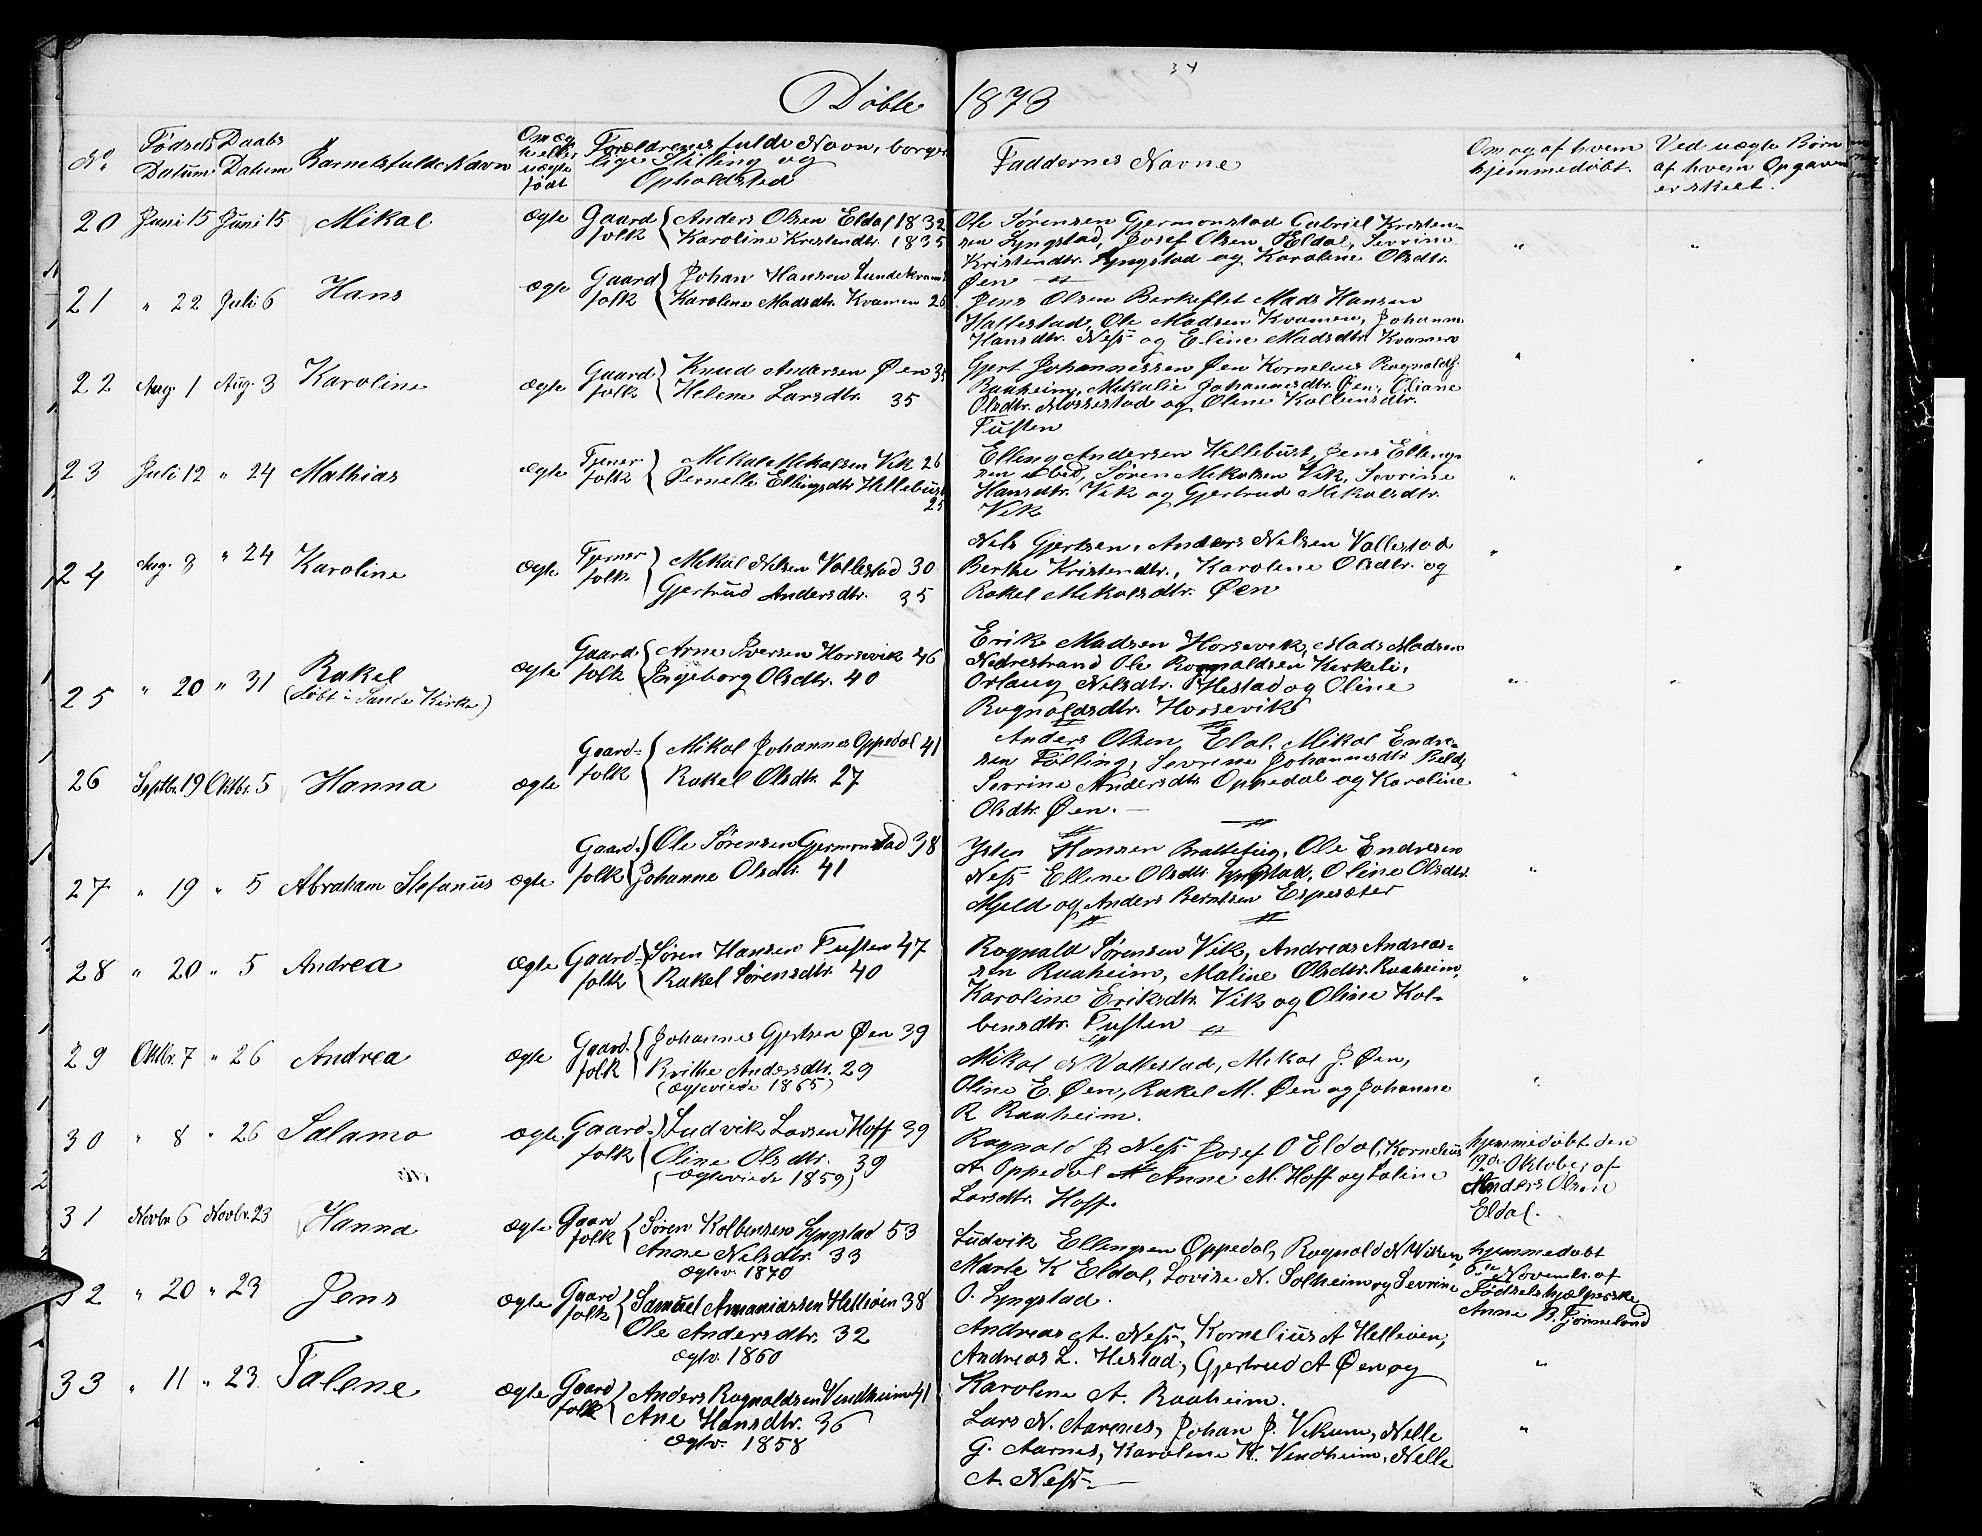 34
Døbte 1873
No
Fødsels Datum
Daabs Datum
Barnets fulde Navn
Om ægte eller uægte født
Forældrenes fulde Navn, borgerlige Stilling og Opholdsted
Faddernes Navne
Om og af hvem hjemmedøbt.
Ved uægte Børn af hvem Opgaven er skeet.
20 Juni 15 Juni 15 Mikal ægte Gaardfolk { Anders Olsen Eldal 1832
Karoline Kristendtr. 1835
Ole Sørensen Gjermonstad Gabriel Kristen-
sen Lyngstad, Josef Olsen Eldal, Sevrine
Kristendtr. Lyngstad og Karoline Olsdtr.
Øen
21 " 22 Juli 6 Hans ægte Gaardfolk { Johan Hansen Lundekvam
Karoline Madsdtr. Kvamen 26
Jens Olsen Berkeflet Mads Hansen
Hallestad, Ole Madsen Kvamen, Johanne
Hansdtr. Ness og Eline Madsdtr. Kvamen
22 Aug. 1 Aug. 3 Karoline ægte Gaardfolk { Knud Andersen Øen 35
Helene Larsdtr. 35
Gjert Johannessen Øen Kornelius Rognalds.
Raaheim, Mikalie Johannesdtr. Øen, Eliane
Olsdtr. Mossestad og Oline Kolbensdtr.
Tuften
23 Juli 12 " 24 Mathias ægte Tjenerfolk { Mikal Mikalsen Vik 26
Pernelle Ellingsdtr. Hellebust
25
Elling Andersen Hellebust, Jens Elling-
sen ibid, Søren Mikalsen Vik, Sevrine
Hansdtr. Vik og Gjertrud Mikalsdtr.
Vik
24 Aug. 8 " 24 Karoline ægte Tjenerfolk } Mikal Nilsen Vallestad 30
Gjertrud Andersdtr. 35
Nils Gjertsen, Anders Nilsen Vallestad
Berthe Kristendtr., Karolene Olsdtr. og
Rakel Mikalsdtr. Øen
25 " 20 " 31 Rakel ægte Gaardfolk { Arne Iversen Horsevik 46
(Døbt i Sande Kirke)
Ingeborg Olsdtr. 40
Erik Madsen Horsevik, Mads Madsen
Nedrestrand Ole Rognaldsen Kirkeli,
Orlaug Nilsdtr. Hestad og Oline
Rognaldsdtr. Horsevik
26 Septbr. 19 Oktbr. 5 Hanna ægte Gaardfolk { Mikal Johannes Oppedal 41
Rakel Olsdtr. 27
Anders Olsen Eldal, Mikal Endre-
sen Følling, Sevrine Johannesdtr.
Sevrine Andersdtr. Oppedal og Karoline
Olsdtr. Øen.
27 " 19 " 5 Abraham Stefanus ægte Gaardfolk { Ole Sørensen Gjermonstad 38
Johanne Olsdtr. 41
Hansen Ole Endresen
Ness Elline Olsdtr. Lyngstad, Oline Olsdtr.
Mjeld og Anders Berntsen Espesæter
28 " 20 " 5 Andrea ægte Gaardfolk { Søren Hansen Tuften 47
Rakel Sørensdtr. 40
Rognald Sørensen Vik, Andreas Andreas-
sen Raaheim, Maline Olsdtr. Raaheim,
Karoline Eriksdtr. Vik og Oline Kol-
bensdtr. Tuften
29 Oktbr. 7 " 26 Andrea ægte Gaardfolk { Johannes Gjertsen Øen 39
Brithe Andersdtr. 29
(Ægteviede 1865)
Mikal N Vallestad, Mikal J. Øen,
Oline E. Øen, Rakel M. Øen og Johanne
R Raaheim.
30 " 8 " 26 Salamo ægte Gaardfolk } Ludvik Larsen Hoff 39
Oline Olsdtr. 39
(Ægteviede 1859)
Rognald J. Ness Josef O Eldal, Kornelius
A. Oppedal Anne M. Hoff og Oline
Larsdtr. Hoff.
hjemmedøbt den
19de Oktober af
Anders Olsen
Eldal.
31 Novbr. 6 Novbr. 23 Hanna ægte Gaardfolk { Søren Kolbensen Lyngstad 53
Anne Nilsdtr. 33
Ægtev. 1870
Ludvik Ellingsen Oppedal, Rognald N Viken,
Marte K Eldal, Lovise N. Solheim og Sevrine
O. Lyngstad.
hjemmedøbt
6te Novembr. af
Fødselshjælperske
Anne B. Tjønneland
32 " 20 " 23 Jens ægte Gaardfolk { Samuel Amaniassen Helleven 38
Ole Andersdtr. 32
Ægtv. 1860
Andreas A. Ness, Kornelius A Helleven,
Andreas L. Hestad, Gjertrud A Øen og
Karoline A. Raaheim.
33 " 11 " 23 Talene ægte Gaardfolk { Anders Rognaldsen Vendheim 41
Ane Hansdtr. 36
Ægtv. 1858
Lars N. Aarnes, Johan J. Vikum, Nille
G. Aarnes, Karolene K. Vendheim, Nille
A. Ness